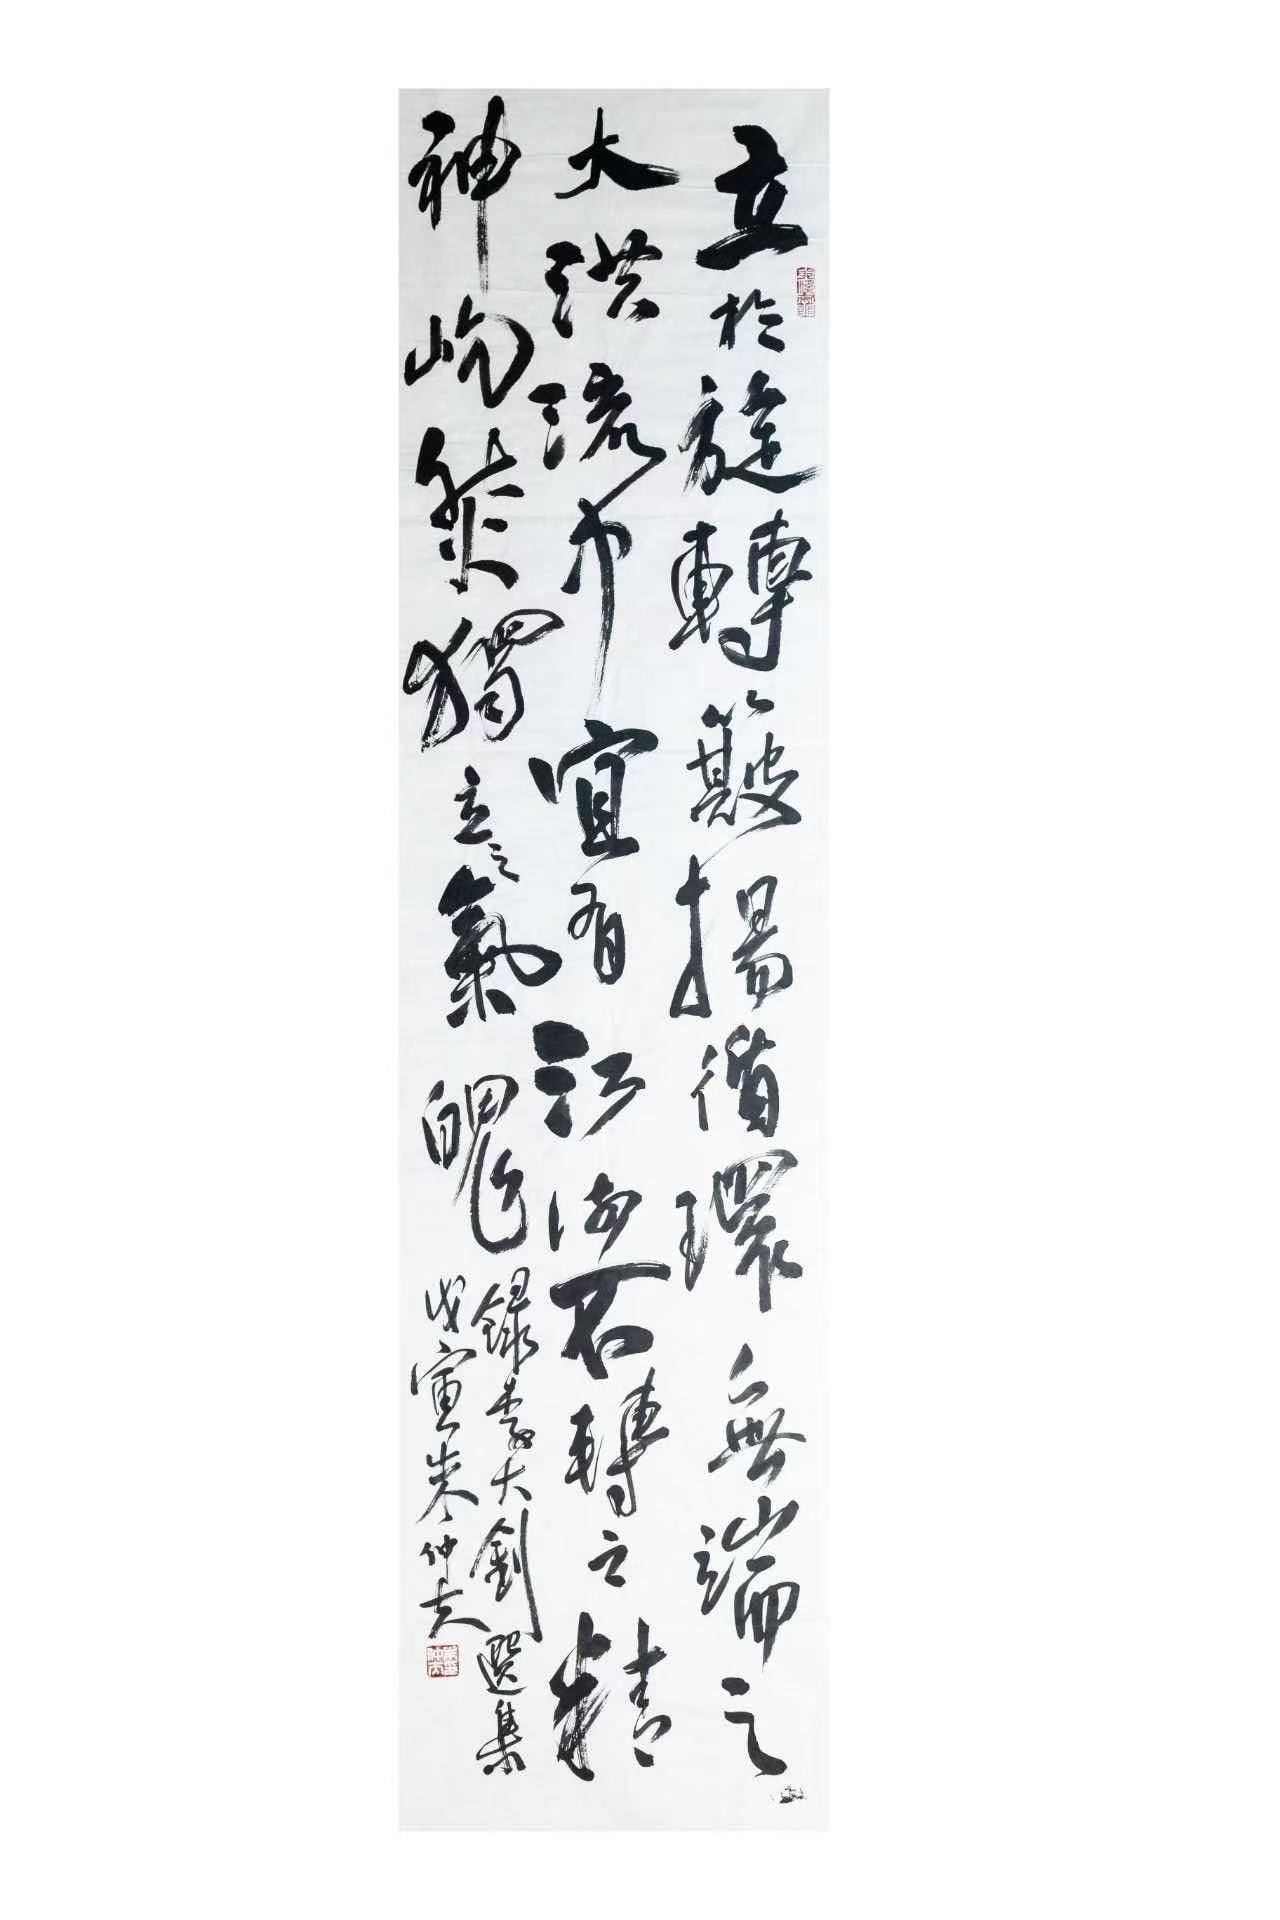 立於旋轉簸揚循環無端之
大洪流中宜有江流石轉之精
神屹然獨立之氣魄
錄李大釗選集
戊寅朱仲夫